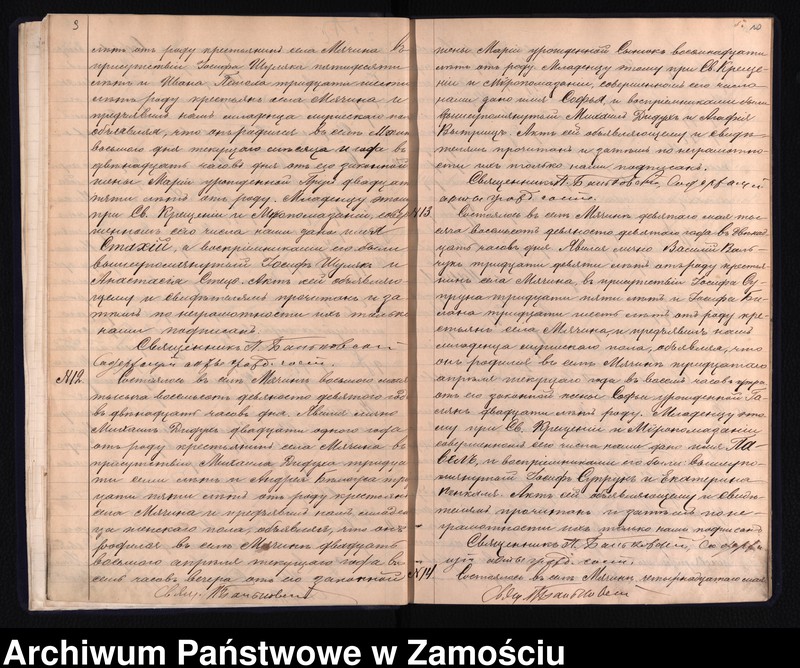 3
лѣтъ отъ роду крестьянинъ села Мячина въ
присутствіи Іосифа Шумяка пятидесяти
лѣтъ и Ивана тридцати шести
лѣтъ роду крестьянъ села Мячина и
предъявилъ намъ младенца мужескаго пола
объявляя, что онъ родился въ селѣ Мячинѣ
восьмого дня текущаго мѣсяца и года въ
двѣнадцать часовъ дня отъ его законной
жены Маріи урожденной двадцати
пяти лѣтъ отъ роду. Младенцу этому
при Св. Крещеніи и Мѵропомазаніи, совер
шенномъ его числа нами дано имя
Стахій, а воспріемниками его были
вышеупомянутый Іосифъ Шумякъ и
Анастасія Актъ сей объявляю
щему и свидѣтелямъ прочитанъ и за
тѣмъ по неграмотности ихъ только
нами подписанъ.
Священникъ П. Баньковскій
Содержащій акты гражд. сост.
№12. Состоялось въ селѣ Мячинѣ восьмого мая
тысяча восемьсотъ девяносто девятаго года
въ двѣнадцать часовъ дня. Явился лично
Михаилъ двадцати одного года
отъ роду крестьянинъ села Мячина въ
присутствіи Михаила тридца
ти семи лѣтъ и Андрея три
дцати пяти лѣтъ отъ роду крестьянъ
села Мячина и предъявилъ намъ младен
ца женскаго пола, объявляя, что онъ
родился въ селѣ Мячинѣ двадцать
восьмого апрѣля текущаго года въ
семь часовъ вечера отъ его законной
Свящ. П. Баньковскій
жены Маріи урожденной восьмнадцати
лѣтъ отъ роду. Младенцу этому при Св. Креще
ніи и Мѵропомазаніи, совершенномъ его числа
нами дано имя Софья, и воспріемниками были
вышеупомянутый Михаилъ и Агафія
Актъ сей объявляющему и свидѣ
телямъ прочитанъ и затѣмъ по неграмотно
сти ихъ только нами подписанъ.
Священникъ П. Баньковскій, Содержащій
акты гражд. сост.
№13. Состоялось въ селѣ Мячинѣ девятаго мая ты
сяча восемьсотъ девяносто девятаго года въ двѣнад
цать часовъ дня. Явился лично Василій
тридцати девяти лѣтъ отъ роду крестья
нинъ села Мячина, въ присутствіи Іосифа Су
прука тридцати пяти лѣтъ и Іосифа
тридцати шести лѣтъ отъ роду кре
стьянъ села Мячина, и предъявилъ намъ
младенца мужескаго пола, объявляя, что
онъ родился въ селѣ Мячинѣ тридцатаго
апрѣля текущаго года въ восемь часовъ утра
отъ его законной жены Софьи урожденной
двадцати лѣтъ роду. Младенцу это
му при Св. Крещеніи и Мѵропомазаніи
совершенномъ его числа нами дано имя Па
велъ, и воспріемниками его были вышеупо
мянутый Іосифъ Супрукъ и Екатерина
Актъ сей объявляющему и свидѣ
телямъ прочитанъ и затѣмъ по не
грамотности ихъ только нами подписанъ
Священникъ П. Баньковскій, Содержа
щій акты гражд. сост.
№14. Состоялось въ селѣ Мячинѣ четырнадцатаго мая
Свящ. П. Баньковскій
Archiwum Państwowe w Zamościu